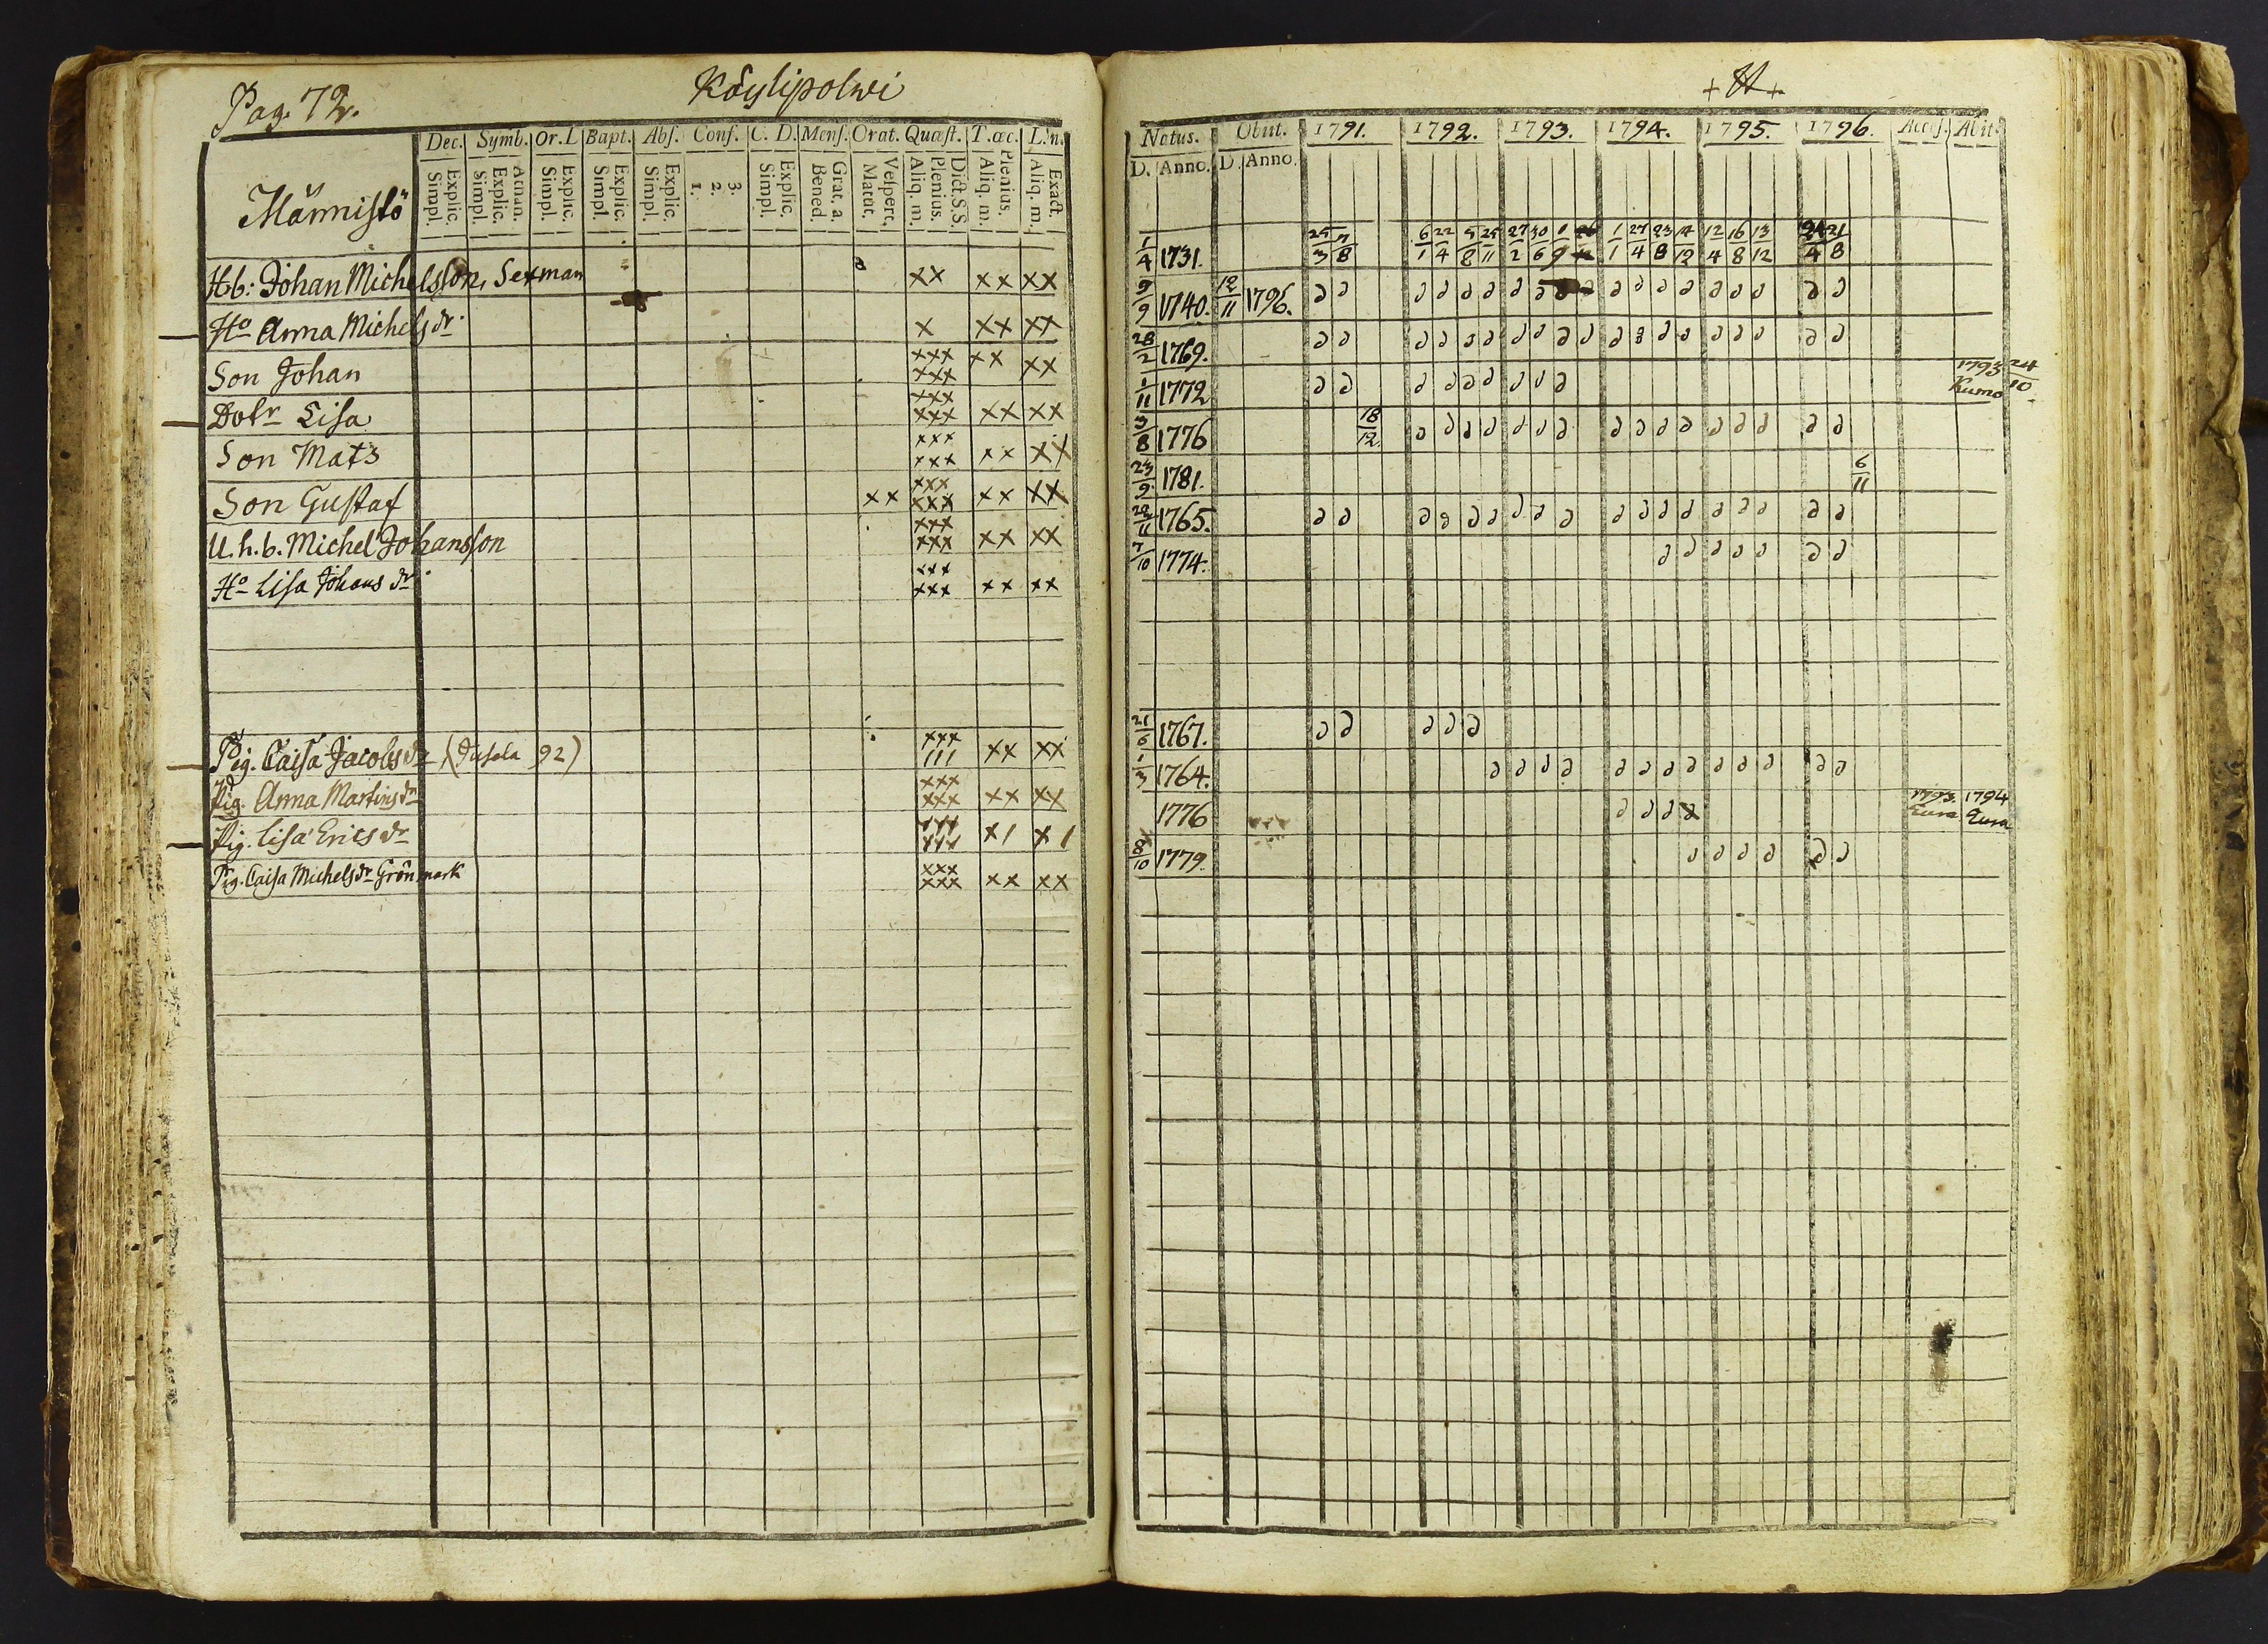 Pag. 72.
Köylipolwi
Dec. Symb. Or. L Bapt. Abſ. Conf. C. D. Menſ. Orat. Quæſt. T. œc. L. n.
Explic. Simpl.
Athan. Explic. Simpl.
Explic. Simpl.
Explic. Simpl.
Explic. Simpl.
3. 2. 1.
Explic. Simpl.
Grat. a. Bened.
Veſpert. Matut.
Dict. S.S. Plenius. Aliq. m.
Plenius. Aliq. m.
Exact. Aliq. m.
Männiſtö
Hb: Johan Michelsſon, Sexman xx xx xx
Ho Anna Michelsdr x xx xx
Son Johan xxx xxx xx xx
Dotr Liſa xxx xxx xx xx
Son Mats xxx xxx xx xx
Son Guſtaf xx xxx xxx xx xx
U.h.b. Michel Johansſon xxx xxx xx xx
Ho Liſa Johans dr xxx xxx xx xx
Pig. Caiſa Jacobsdr 92) xxx III xx xx
Pig. Anna Martinsdr xxx xxx xx xx
Pig. Liſa Ericsdr x1 x1
Pig. Caiſa Michelsdr Grönmark xxx xxx xx xx
Natus. Obiit. 1791. 1792. 1793. 1794. 1795. 1796. Acceſ. Abit.
D. Anno. D. Anno.
25/3 7/8 6/1 22/4 5/8 25/11 27/2 30/6 1/1 27/4 23/8 14/12 12/4 16/8 13/12 24/4 21/8
1/4 1731.
9/9 1740. 12/11 1796.
28/2 1769.
1/11 1772 1793 24/10 Kumo
3/8 1776 18/12
23/9 1781. 6/11
1765.
7/10 1774.
21/6 1767.
1/3 1764.
1776 1793. Eura 1794 Eura
8/10 1779.